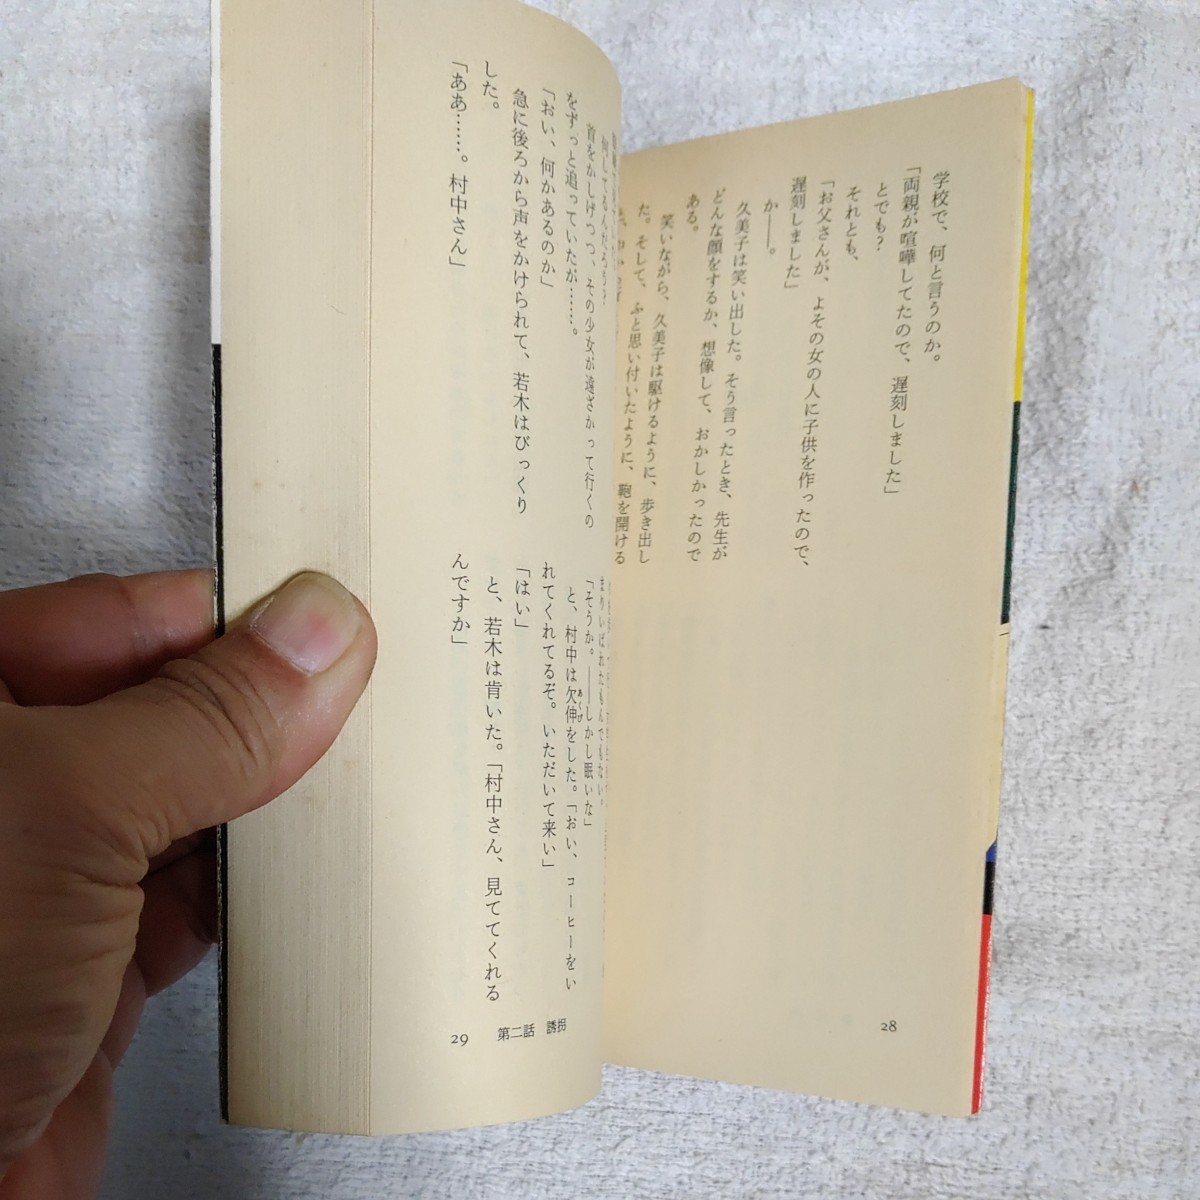 学校で、何と言うのか。
「両親が喧嘩してたので、遅刻しました」
とでも？
それとも、
「お父さんが、よその女の人に子供を作ったので、
遅刻しました」
か――。
久美子は笑い出した。そう言ったとき、先生が
どんな顔をするか、想像して、おかしかったので
ある。
笑いながら、久美子は駆けるように、歩き出し
た。そして、ふと思い付いたように、鞄を開ける
28
何してるんだろう？
首をかしげつつ、その少女が遠ざかって行くの
をずっと追っていたが……。
「おい、何かあるのか」
急に後ろから声をかけられて、若木はびっくり
した。
「ああ……。村中さん」
「そうか。――しかし眠いな」
と、村中は欠伸をした。「おい、コーヒーをい
あくび
れてくれてるぞ。いただいて来い」
「はい」
と、若木は肯いた。「村中さん、見ててくれる
んですか」
第二話　誘拐
29